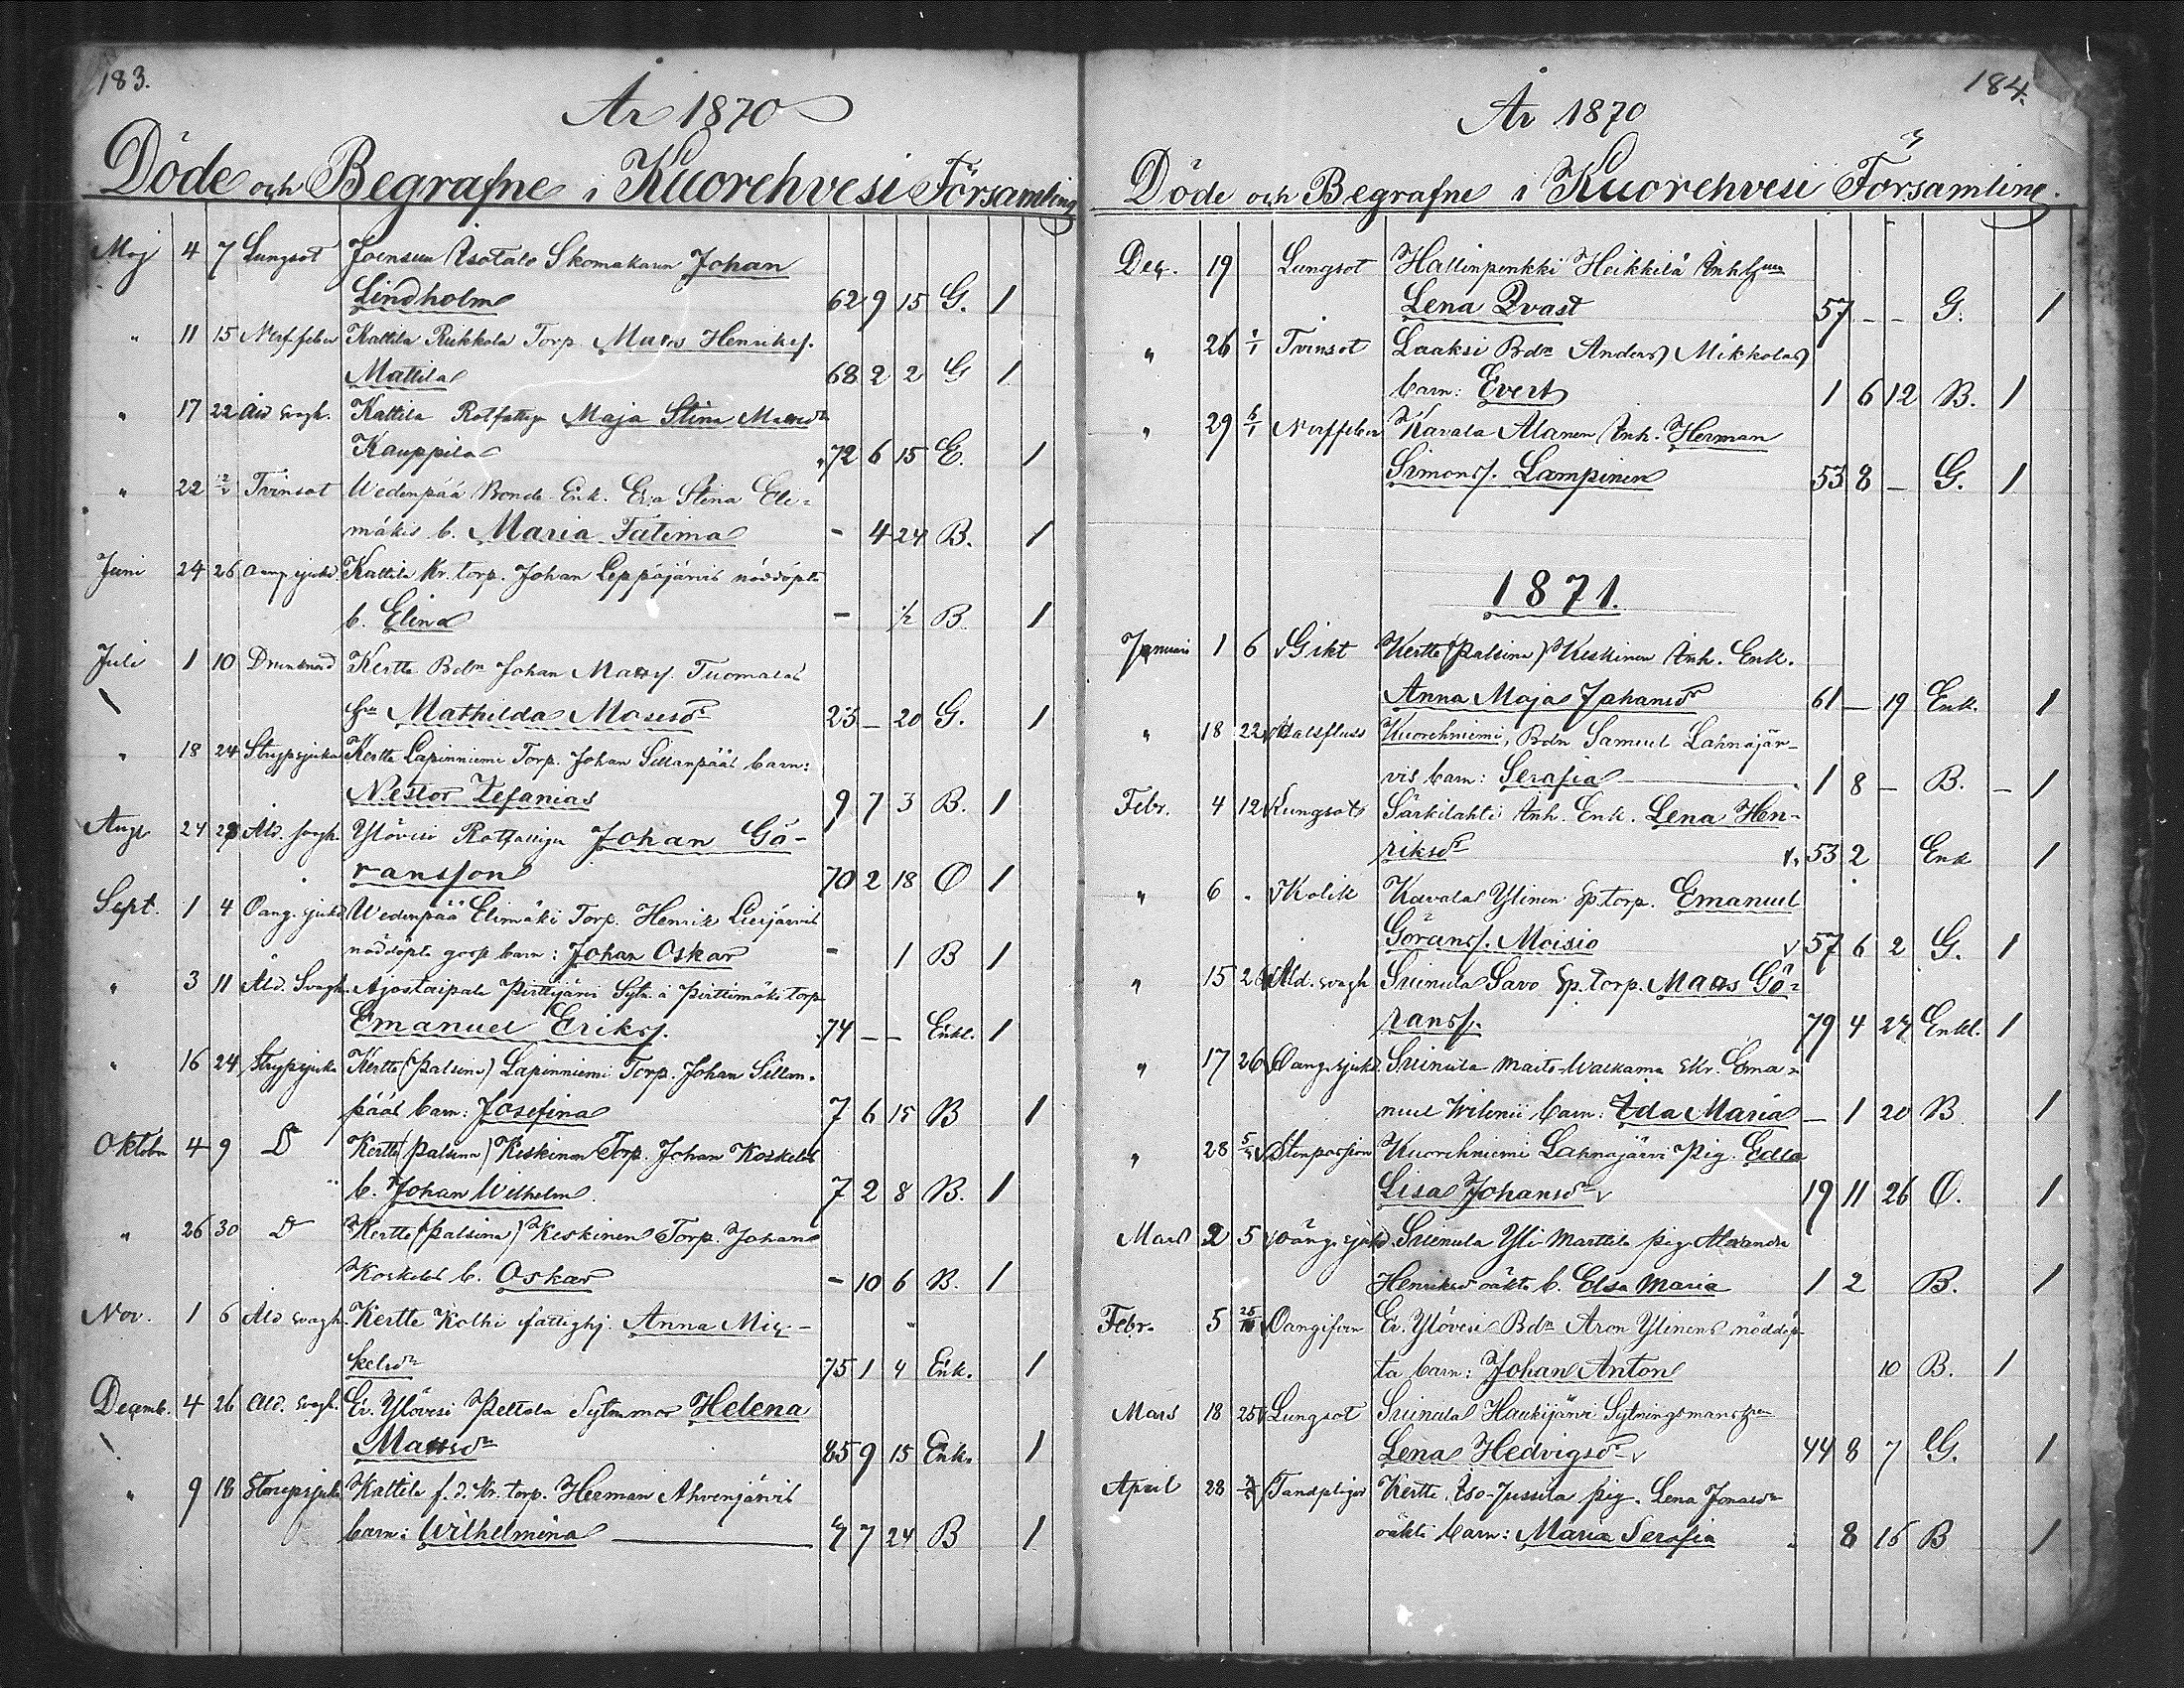 183.
År 1870
Döde och Begrafne i Kuorehvesi Församling
Maj 4 7 Lungsot Joensuu Isotalo Skomakaren Johan
Lindholm 62 9 15 G. 1
" 11 15 Nerffeber Kattila Rekkola Torp. Matts Henrikss.
Mattila 68 2 2 G 1
" 17 22 Åld. svagh. Kattila Rotfattig Maja Stina Mattsdr
Kauppila 72 6 15 E. 1
" 22 Tvinsot Wedenpää Bonde Enk. Eva Stina Eli-
mäkis b. Maria Fatima - 4 24 B. 1
Juni 24 26 Oang. sjukd. Kattila Kr. torp. Johan Leppäjärvis nöddöpta
b. Elina - ½ B. 1
Juli 1 10 Drunknad Kertte Bdn Johan Matss. Tuomalas
hu Mathilda Mosesdr 25 - 20 G. 1
" 18 24 Strypsjuka Kertte Lapinniemi Torp. Johan Sillanpääs barn:
Nestor Zefanias 9 7 3 B. 1
Aug. 24 28 Åld. svagh. Ylövesi Rotfattige Johan Gö-
ransson 70 2 18 O 1
Sept. 1 4 Oang. sjukd. Wedenpää Elimäki Torp. Henrik Liesjärvis
nöddöpta goss barn: Johan Oskar - 1 B 1
" 3 11 Åld. Svagh. Ajostaipale Pirttijärvi Sytn. å Pirttimäki torp
Emanuel Erikss. 74 - - Enkl. 1
" 16 24 Strypsjuka Kertte (Palsina) Lapinniemi Torp. Johan Sillan-
pääs barn: Josefina 7 6 15 B 1
Oktober 4 9 D Kertte (Palsina) Keskinen Torp. Johan Koskelas
b. Johan Wilhelm 7 2 8 B. 1
" 26 30 D Kertte (Palsina) Keskinen Torp. Johan
Koskelas b. Oskar - 10 6 B. 1
Nov. 1 6 Åld svagh. Kertte Kolhi fattighj. Anna Mic-
kelsdr 75 1 4 Enk. 1
Decemb. 4 26 Åld. svagh. Er. Ylövesi Peltola Sytn.mor Helena
Mattsdr 85 9 15 Enk. 1
" 9 18 Strupsjuka Kattila f. d. Kr. torp. Herman Ahvenjärvis
barn: Wilhelmina 7 7 24 B 1
184.
År 1870
Döde och Begrafne i Kuorehvesi Församling.
Dec. 19 Lungsot Hallinpenkki Heikkilä Inh.
Lena Qvast 57 - - G. 1
" 26 1/1 Tvinsot Laaksi Bdn Anders Mikkolas
barn: Evert 1 6 12 B. 1
" 29 Nerffeber Kavala Alanen Inh. Herman
Simonss. Lampinen 53 8 - G. 1
1871.
Januari 1 6 Gikt Kertte (Palsina) Keskinen Inh. Enk.
Anna Maja Johansdr 61 - 19 Enk. 1
" 18 22 Halsfluss Kuorehniemi, Bdn Samuel Lahnajär-
vis barn: Serafia 1 8 - B. - 1
Febr. 4 12 Lungsot Särkilahti Inh. Enk. Lena Hen-
riksdr 53 2 Enk 1
" 6 " Kolik Kavala Ylinen Sp. torp. Emanuel
Göranss. Moisio 57 6 2 G. 1
" 15 26 Åld. svagh Suinula Savo Sp. torp. Matts Gö-
ranss. 79 4 27 Enkl. 1
" 17 26 Oang. sjukd. Suinula Maito-Waskama Skr. Ema-
nuel Wilenii barn: Ida Maria - 1 20 B 1
" 28 Stenpassion Kuorehniemi Lahnajärvi Pig. Edla
Lisa Johansdr 19 11 26 O. 1
Mars 2 5 Oång. sjukd. Suinula Yli Marttila pig. Alexandra
Henriksdr oäkta b. Elsa Maria 1 2 B. 1
Febr. 5 Oangifven Er. Ylövesi Bdn Aron Ylinens nöddöp-
ta barn: Johan Anton 10 B. 1
Mars 18 25 Lungsot Suinula Haukijärvi Sytningsmans
Lena Hedvigsdr 44 8 7 G. 1
April 28 Tandplågor Kertte Iso-Jussila pig. Lena Jonasdr
oäkta barn: Maria Serafia 8 16 B 1